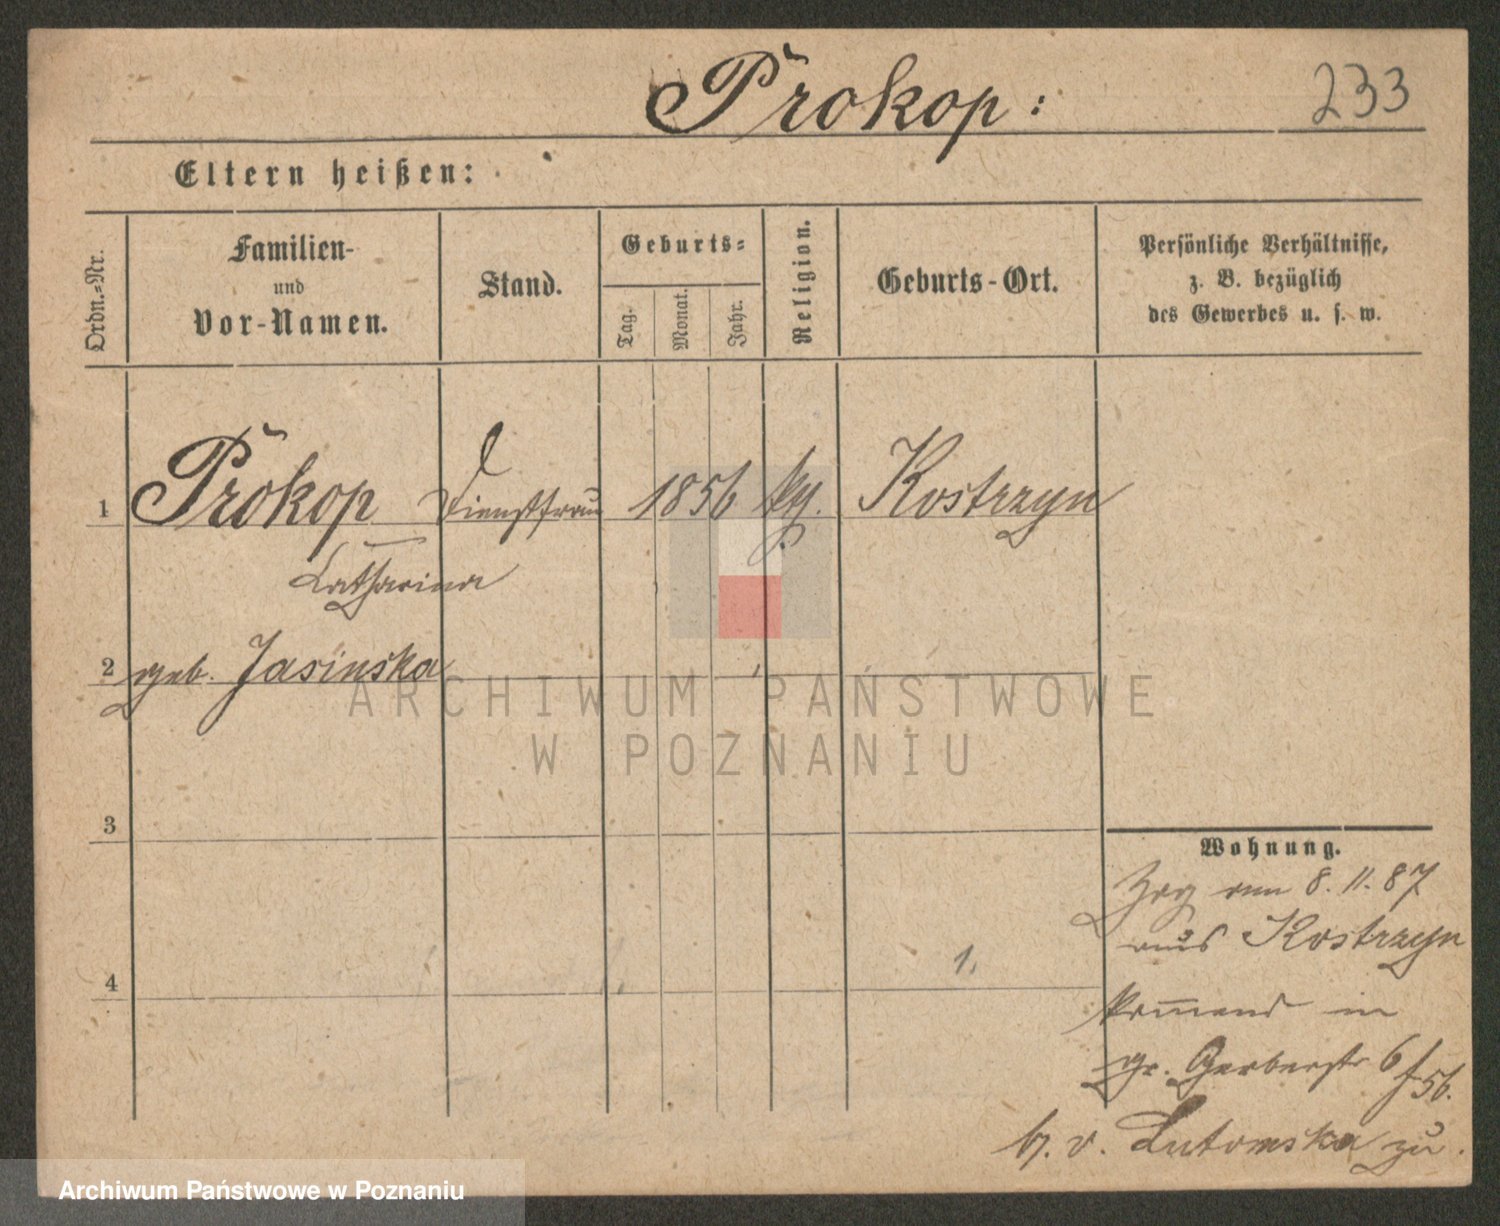 Prokop:
233
Eltern heißen:
Ordn.-Nr.
Familien-
und
Vor-Namen.
Stand.
Geburts-
Tag.
Monat.
Jahr.
Religion.
Geburts-Ort.
Persönliche Verhältnisse,
z. B. bezüglich
des Gewerbes u. s. w.
1 Prokop Dienstfrau 1856 kth. Kostrzyn
Catharina
2 geb. Jasinska
3
4
1.
Wohnung.
Zog am 8.11.87
aus Kostrzyn
kom̅end in
gr. Gerberstr 6
56.
b. v. Lutomska zu.
ARCHIWUM PAŃSTWOWE
W POZNANIU
Archiwum Państwowe w Poznaniu